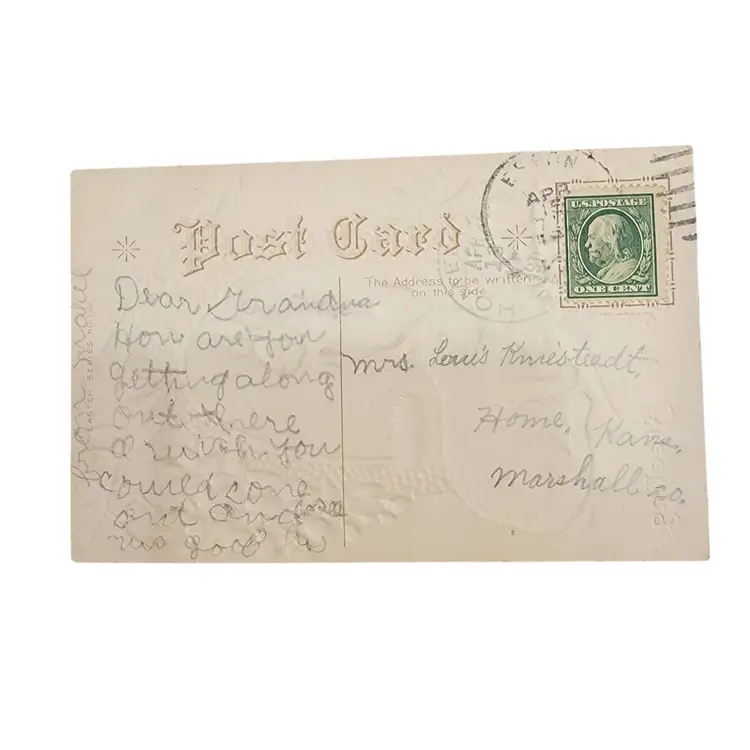 Post Card
The Address to be written
on this side
U.S. POSTAGE
ONE CENT
APR
APR
EASTER SERIES NO.
Dear Grandma
How are you
getting along
out there
I wish you
could come
and
good
from
Mrs. Louis Kniesteadt,
Home, Kans,
Marshall Co.